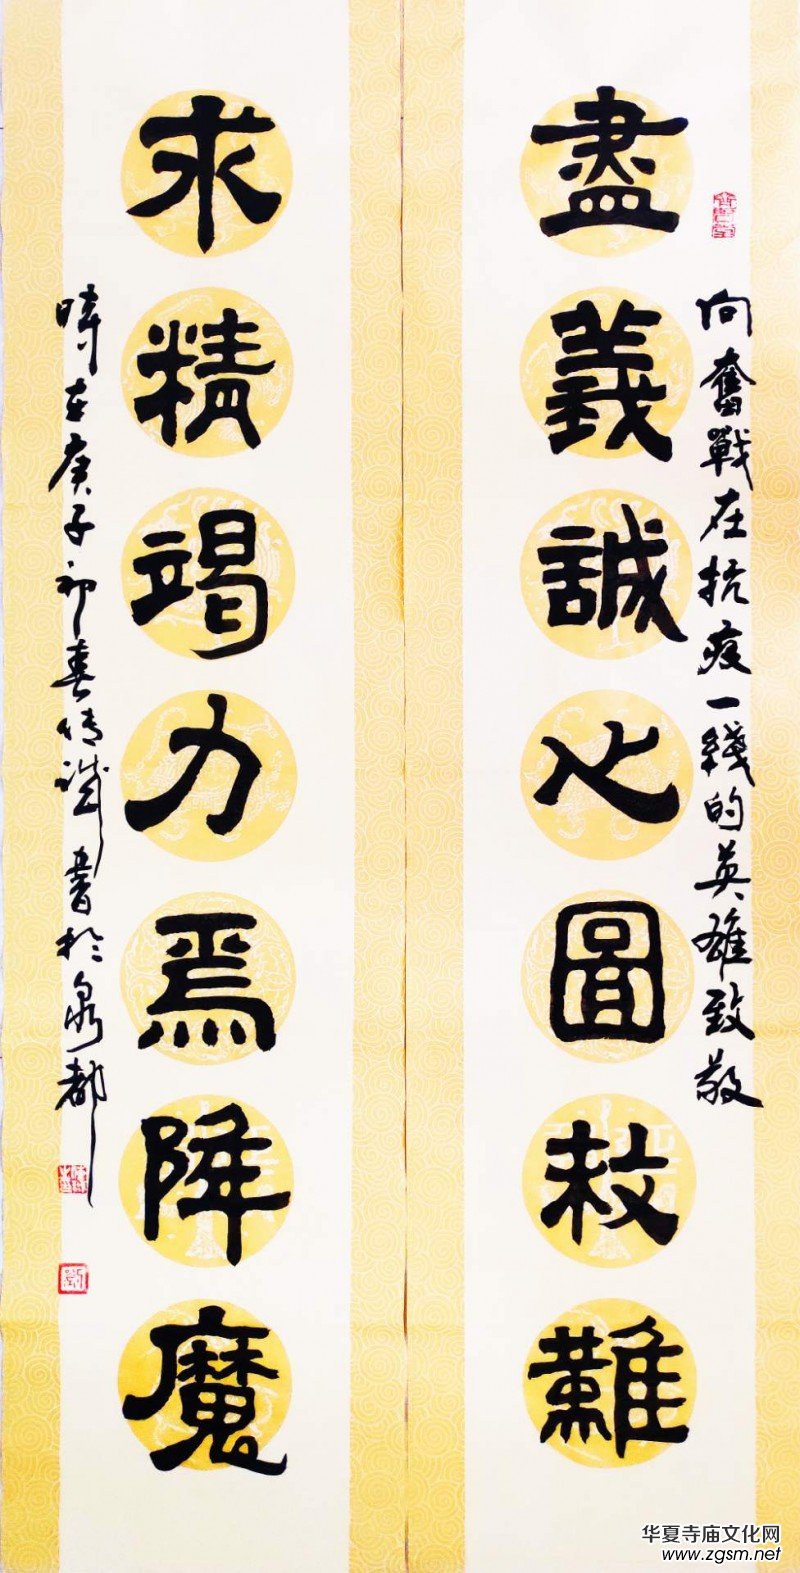 向奮戰在抗疫一綫的英雄致敬
盡義誠心圖救難
求精竭力焉降魔
時在庚子初春書於泉都
华夏寺庙文化网
www.zgsm.net